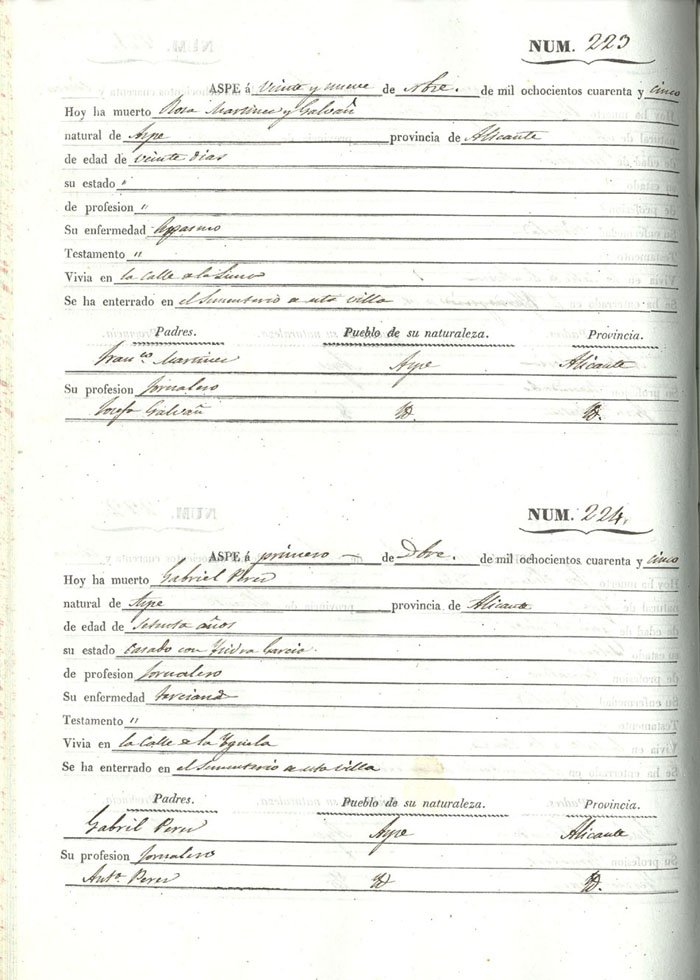 NUM. 223
ASPE á veinte y nueve de Nbre. de mil ochocientos cuarenta y cinco
Hoy ha muerto Rosa Martinez y Galvañ
natural de Aspe provincia de Alicante
de edad de veinte dias
su estado "
de profesion "
Su enfermedad
Testamento "
Vivia en la Calle de la
Se ha enterrado en el Sementerio de esta villa
Padres. Pueblo de su naturaleza. Provincia.
Franco. Martinez Aspe Alicante
Su profesion Jornalero
Josefa Galvañ Yd. Yd.
NUM. 224.
ASPE á primero de Dbre. de mil ochocientos cuarenta y cinco
Hoy ha muerto Gabriel Perez
natural de Aspe provincia de Alicante
de edad de años
su estado Casado con Ysidra Garcia
de profesion Jornalero
Su enfermedad terciana
Testamento "
Vivia en la Calle de la
Se ha enterrado en el Sementerio de esta Villa
Padres. Pueblo de su naturaleza. Provincia.
Gabriel Perez Aspe Alicante
Su profesion Jornalero
Anta. Perez Yd Yd.